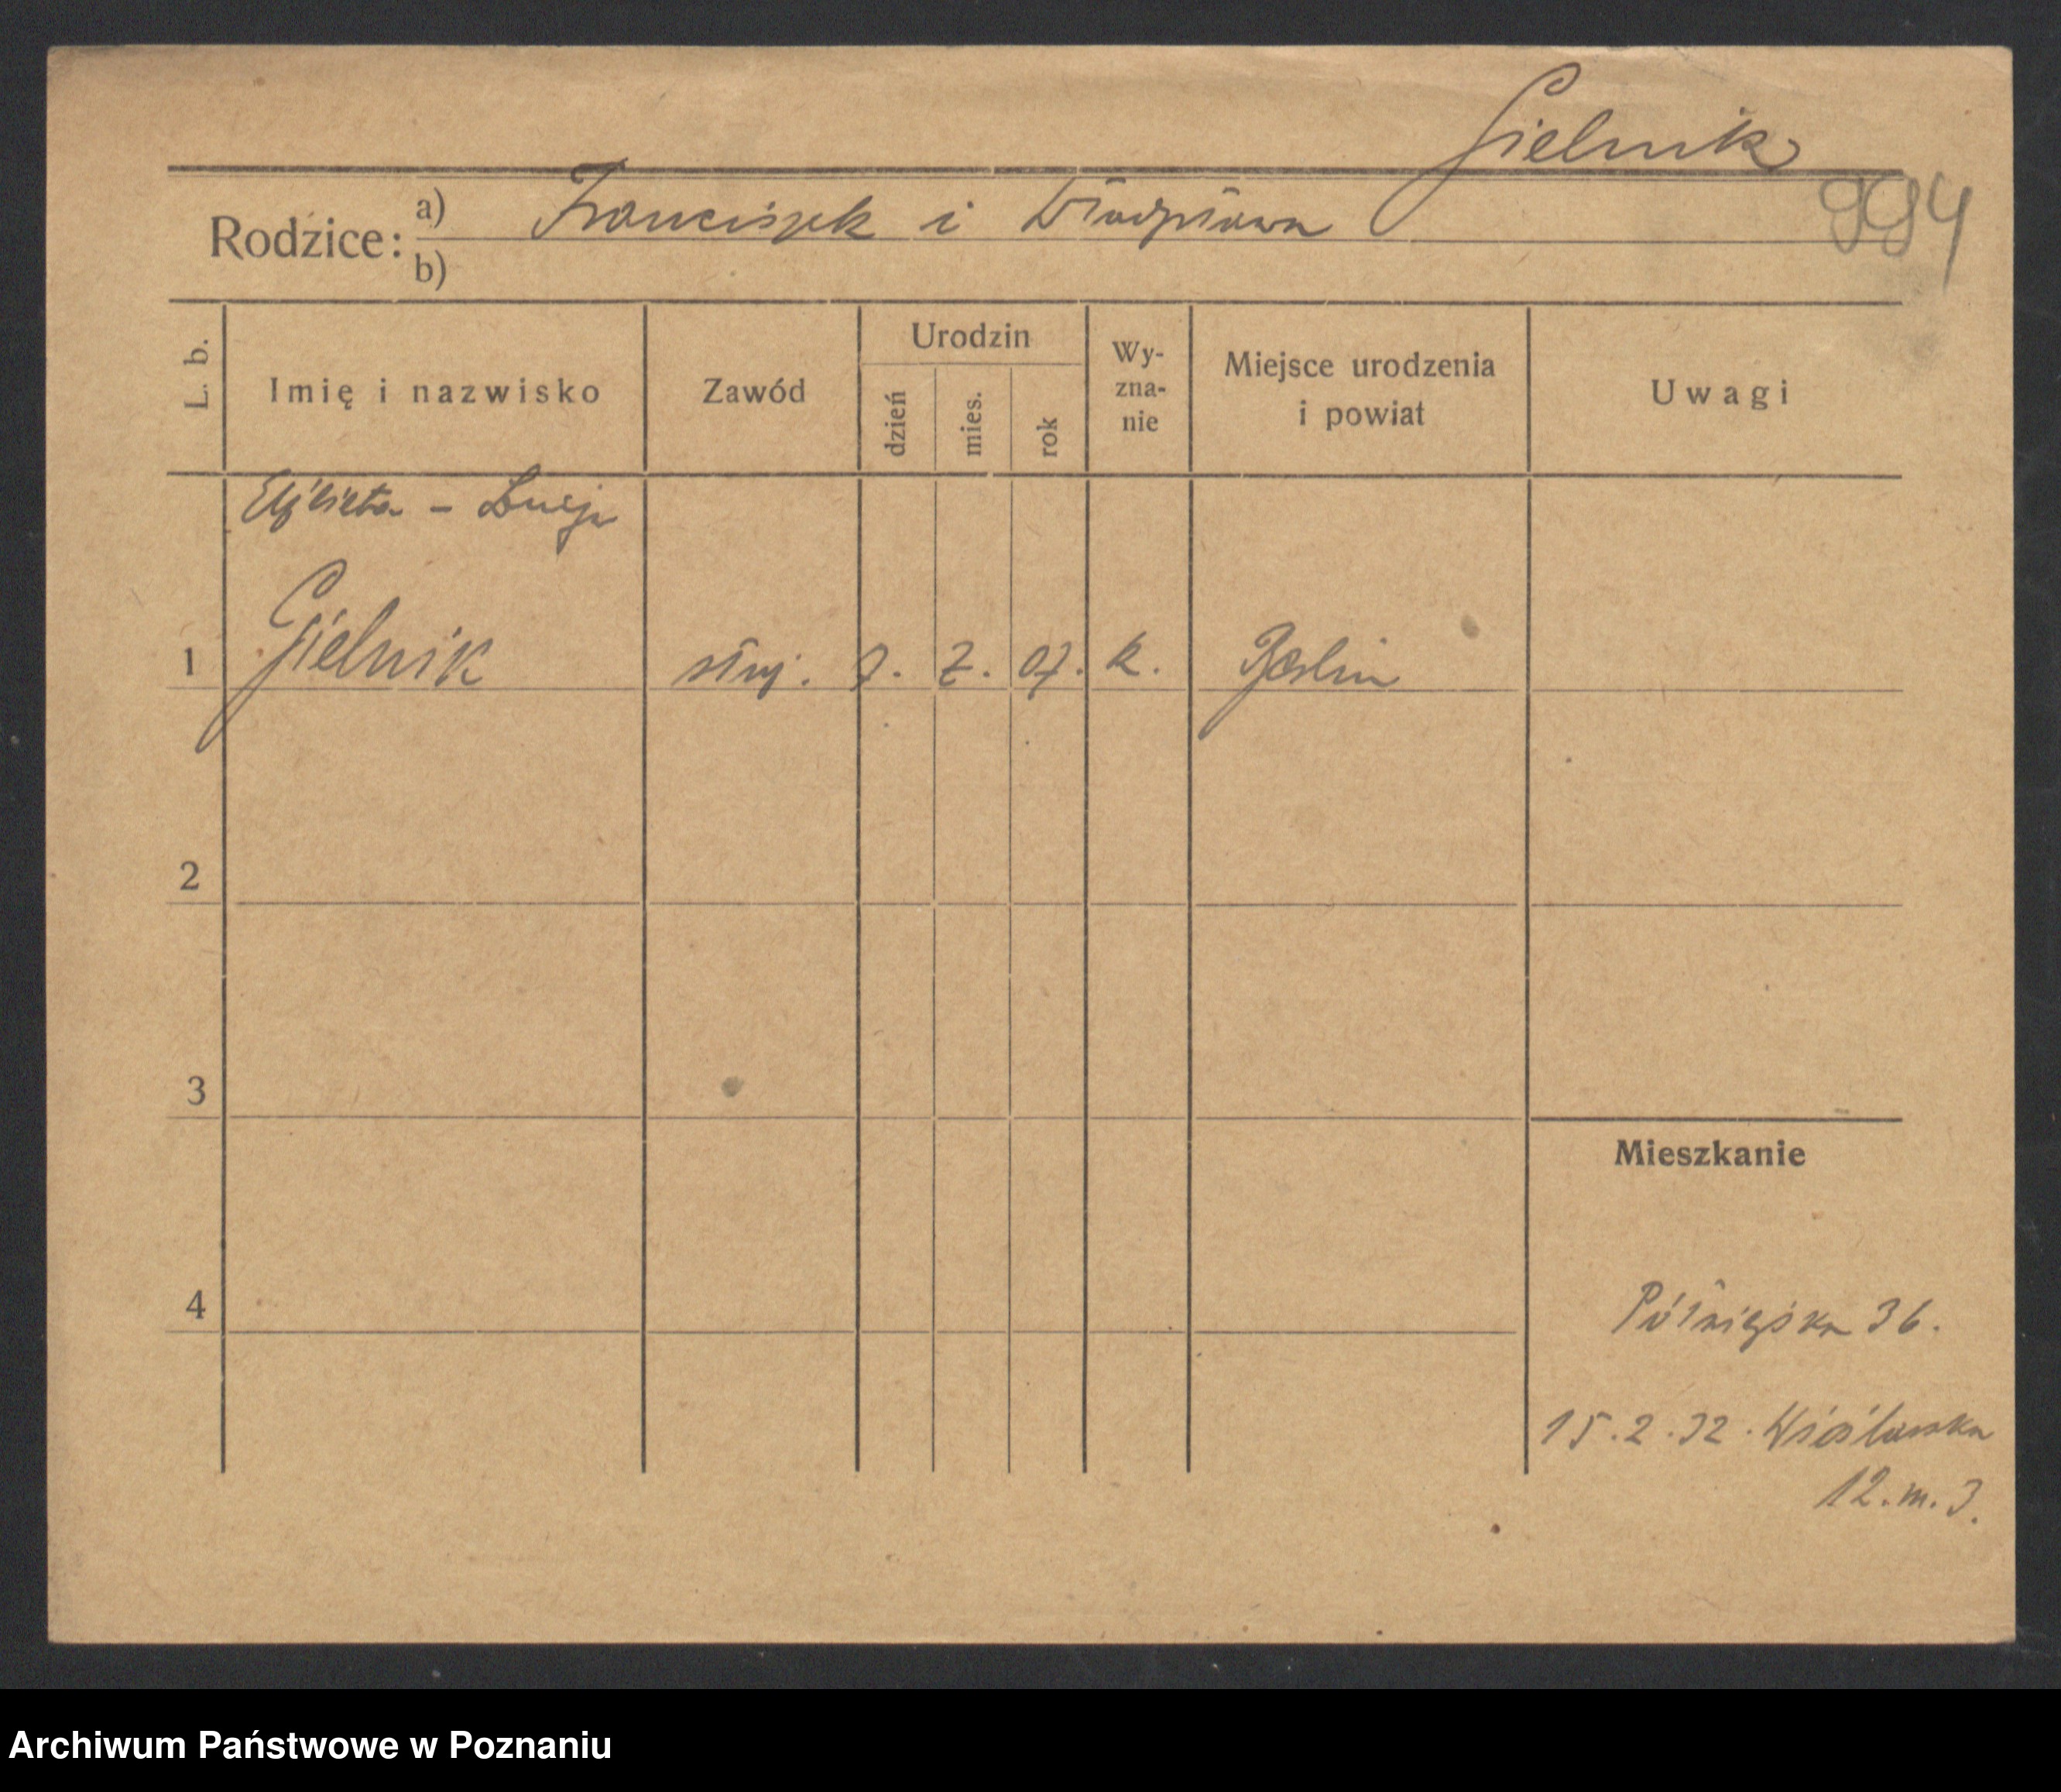 Gielnik
994
Rodzice: a) Franciszek i Władysława
b)
L. b. Imię i nazwisko Zawód Urodzin dzień mies. rok Wy-zna-nie Miejsce urodzenia i powiat Uwagi
Elżbieta - Lucja
1 Gielnik służ. 7. 2. 07. k. Berlin
2
3
Mieszkanie
4
Półwiejska 36.
15.2.32. Wiślańska
12. m. 3.
Archiwum Państwowe w Poznaniu